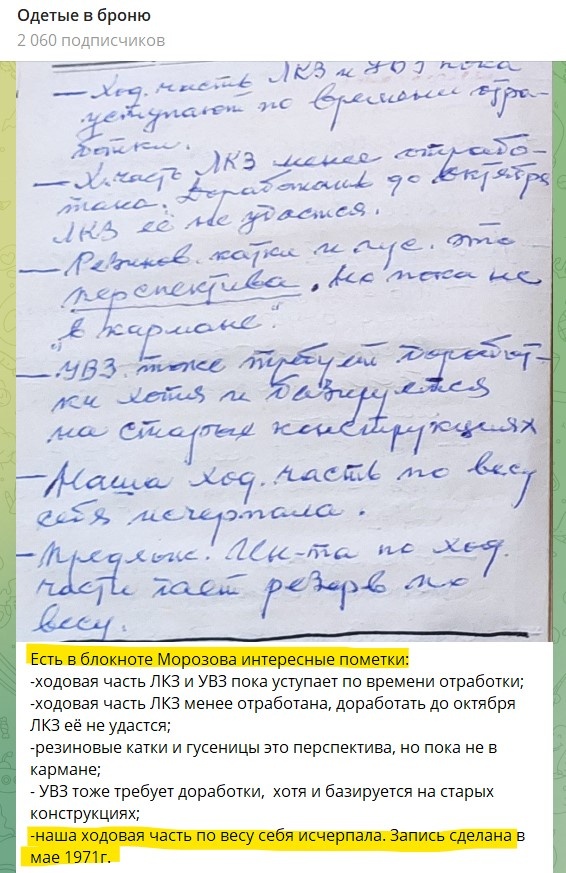 Одетые в броню
2 060 подписчиков
— Ход. часть ЛКЗ и УВЗ пока
уступают по времени отра-
ботки.
— Х. часть ЛКЗ менее отрабо-
тана. Доработать до октября
ЛКЗ её не удастся.
— Резинов. катки и гус. это
перспектива. Но пока не
"в кармане".
— УВЗ тоже требует доработ-
ки хотя и базируется
на старых конструкциях
— Наша ход. часть по весу
себя исчерпала.
— Предлож. Ин-та по ход.
части даёт резерв по
весу.
Есть в блокноте Морозова интересные пометки:
-ходовая часть ЛКЗ и УВЗ пока уступает по времени отработки;
-ходовая часть ЛКЗ менее отработана, доработать до октября
ЛКЗ её не удастся;
-резиновые катки и гусеницы это перспектива, но пока не в
кармане;
- УВЗ тоже требует доработки, хотя и базируется на старых
конструкциях;
-наша ходовая часть по весу себя исчерпала. Запись сделана в
мае 1971г.